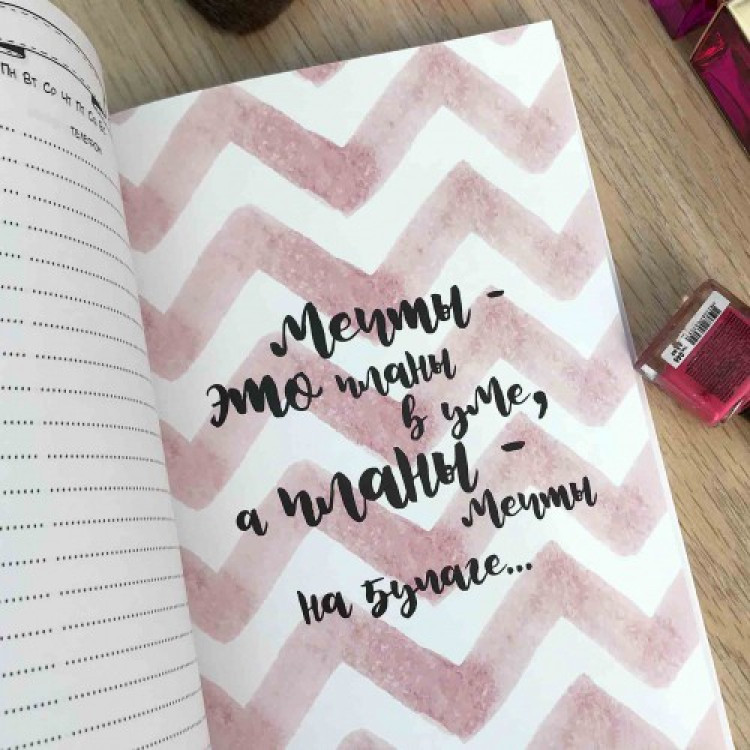 Пн Вт Ср Чт Пт Сб Вс
телефон
Мечты -
это планы
в уме,
а планы -
мечты
на бумаге...